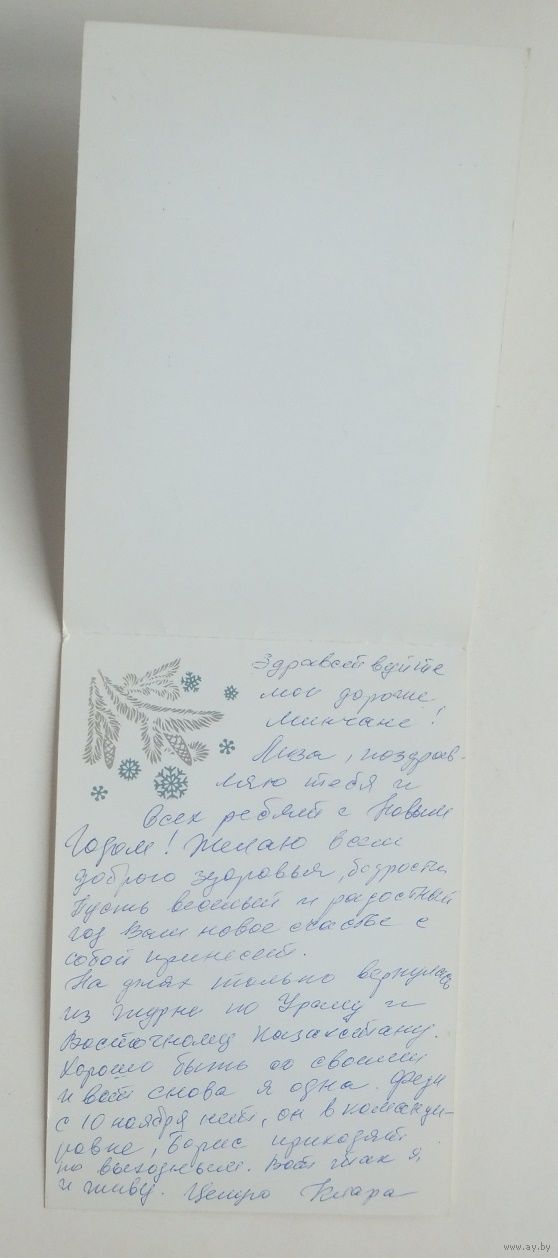 Здравствуйте
мои дорогие
минчане!
Лиза, поздрав-
ляю тебя и
всех ребят с Новым
Годом! Желаю всем
доброго здоровья, бодрости.
Пусть веселый и радостный
год Вам новое счастье с
собой принесет.
На днях только вернулась
из турне по Уралу и
Восточному Казахстану.
Хорошо быть со своими
и вот снова я одна.
с 10 ноября нет, он в команди-
ровке, Борис приходят
по выходным. Вот так я
и живу. Целую Клара
www.ay.by